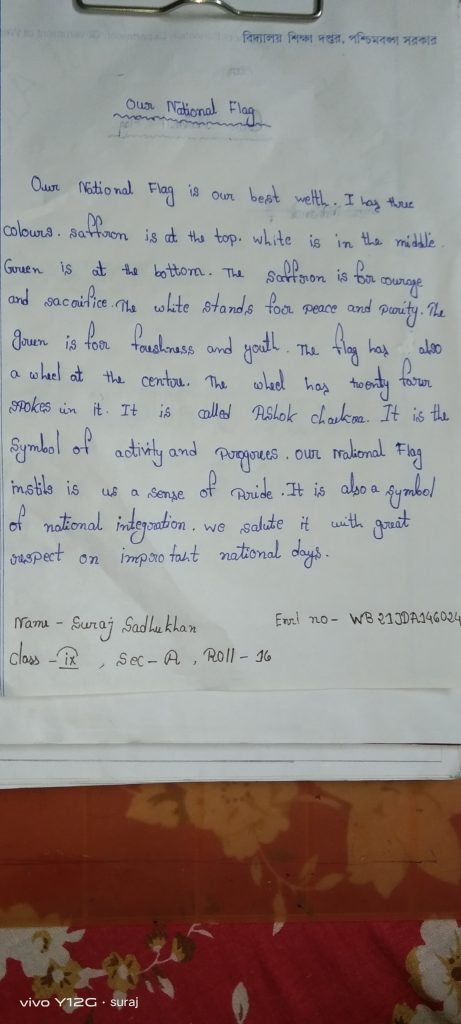 বিদ্যালয় শিক্ষা দপ্তর, পশ্চিমবঙ্গ সরকার
Our National Flag
Our National Flag is our best welth. I has three
colours. saffron is at the top. white is in the middle.
Green is at the bottom. The saffron is for courage
and sacrifice. The white stands foor peace and purity. The
green is foor freshness and youth. The flag has also
a wheel at the centre. The wheel has twenty forer
spokes in it. It is called Ashok chakra. It is the
symbol of activity and Progrees. our National Flag
instils is us a sense of Pride. It is also a symbol
of national integration. we salute it with great
respect on important national days.
Name - Suraj Sadhukhan Enrl no- WB21JDA146024
class - ix , Sec - A , Roll - 16
vivo Y12G · suraj